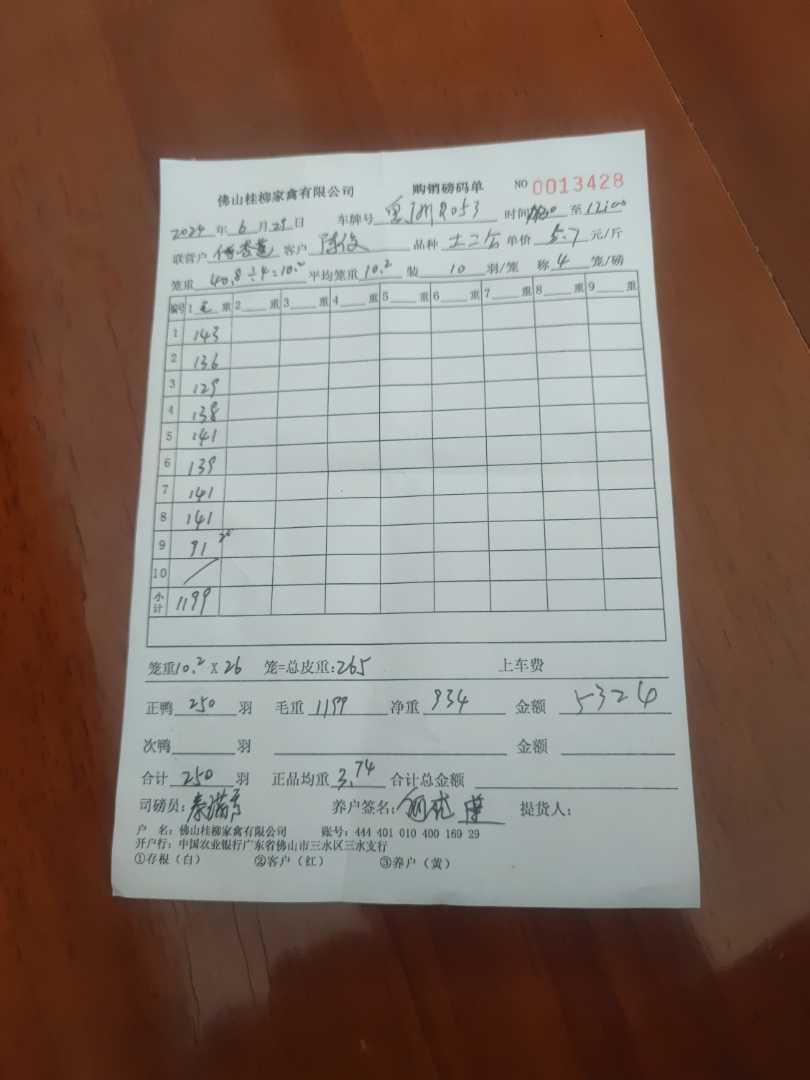 佛山桂柳家禽有限公司 购销磅码单 NO 0013428
2024 年 6 月 29 日 车牌号 R053 时间 至 12:00
联营户 客户 陈俊 品种 土二公 单价 5.7 元/斤
笼重 40.8÷4=10.2 平均笼重 10.2 装 10 羽/笼 称 4 笼/磅
编号 1 毛 重 2 重 3 重 4 重 5 重 6 重 7 重 8 重 9 重
1 143
2 136
3 129
4 138
5 141
6 139
7 141
8 141
9 91
10
小计 1199
笼重 10.2 X 26 笼=总皮重:265 上车费
正鸭 250 羽 毛重 1199 净重 934 金额 5324
次鸭 羽 金额
合计 250 羽 正品均重 3.74 合计总金额
司磅员: 养户签名: 提货人:
户 名: 佛山桂柳家禽有限公司 账号: 444 401 010 400 169 29
开户行: 中国农业银行广东省佛山市三水区三水支行
①存根(白) ②客户(红) ③养户(黄)